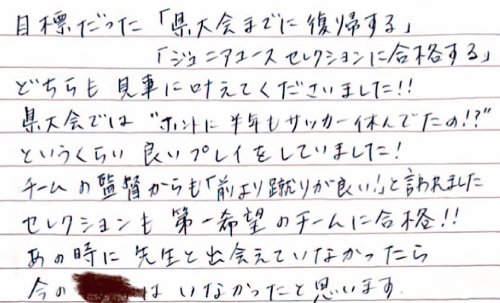 目標だった「県大会までに復帰する」
「ジュニアユースセレクションに合格する」
どちらも見事に叶えてくださいました!!
県大会では"ホントに半年もサッカー休んでたの!?"
というくらい良いプレイをしていました!
チームの監督からも「前より蹴りが良い!」と言われました
セレクションも第一希望のチームに合格!!
あの時に先生と出会えていなかったら
今の はいなかったと思います.